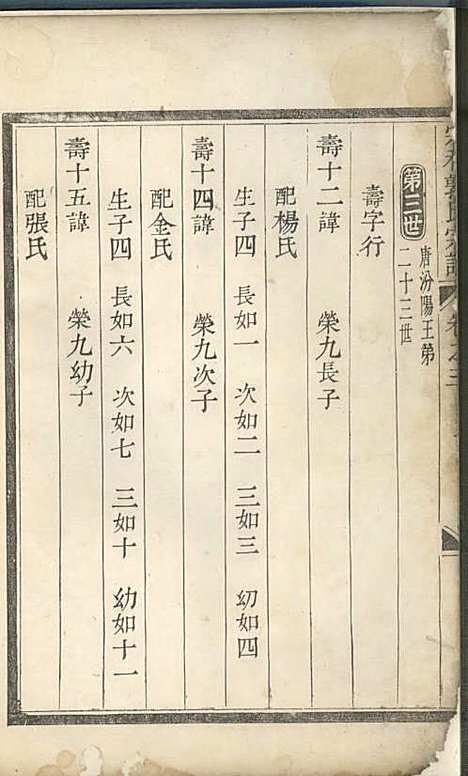 郭氏宗譜
第三世
唐汾陽王第
二十三世
壽字行
壽十二諱 榮九長子
配楊氏
生子四 長如一 次如二 三如三 幼如四
壽十四諱 榮九次子
配金氏
生子四 長如六 次如七 三如十 幼如十一
壽十五諱 榮九幼子
配張氏